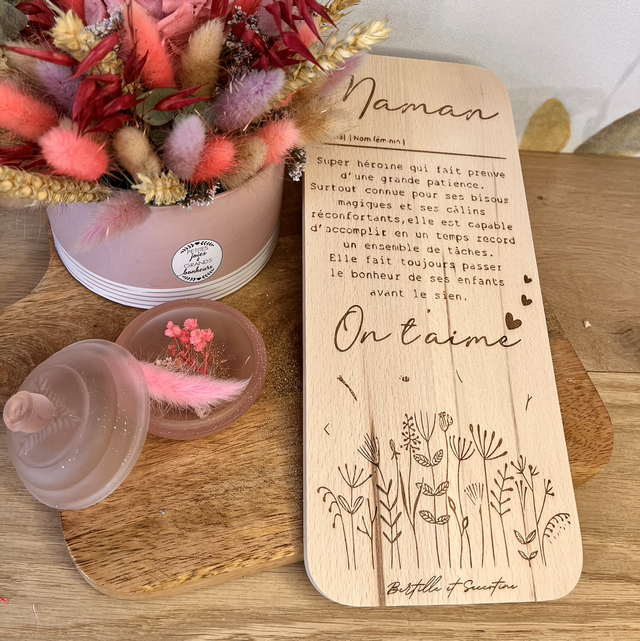 Maman
| Nom féminin |
Super héroïne qui fait preuve
d'une grande patience.
Surtout connue pour ses bisous
magiques et ses câlins
réconfortants, elle est capable
d'accomplir en un temps record
un ensemble de tâches.
Elle fait toujours passer
le bonheur de ses enfants
avant le sien.
On t'aime
Bertille et
PETITES
joies
& GRANDS
bonheurs